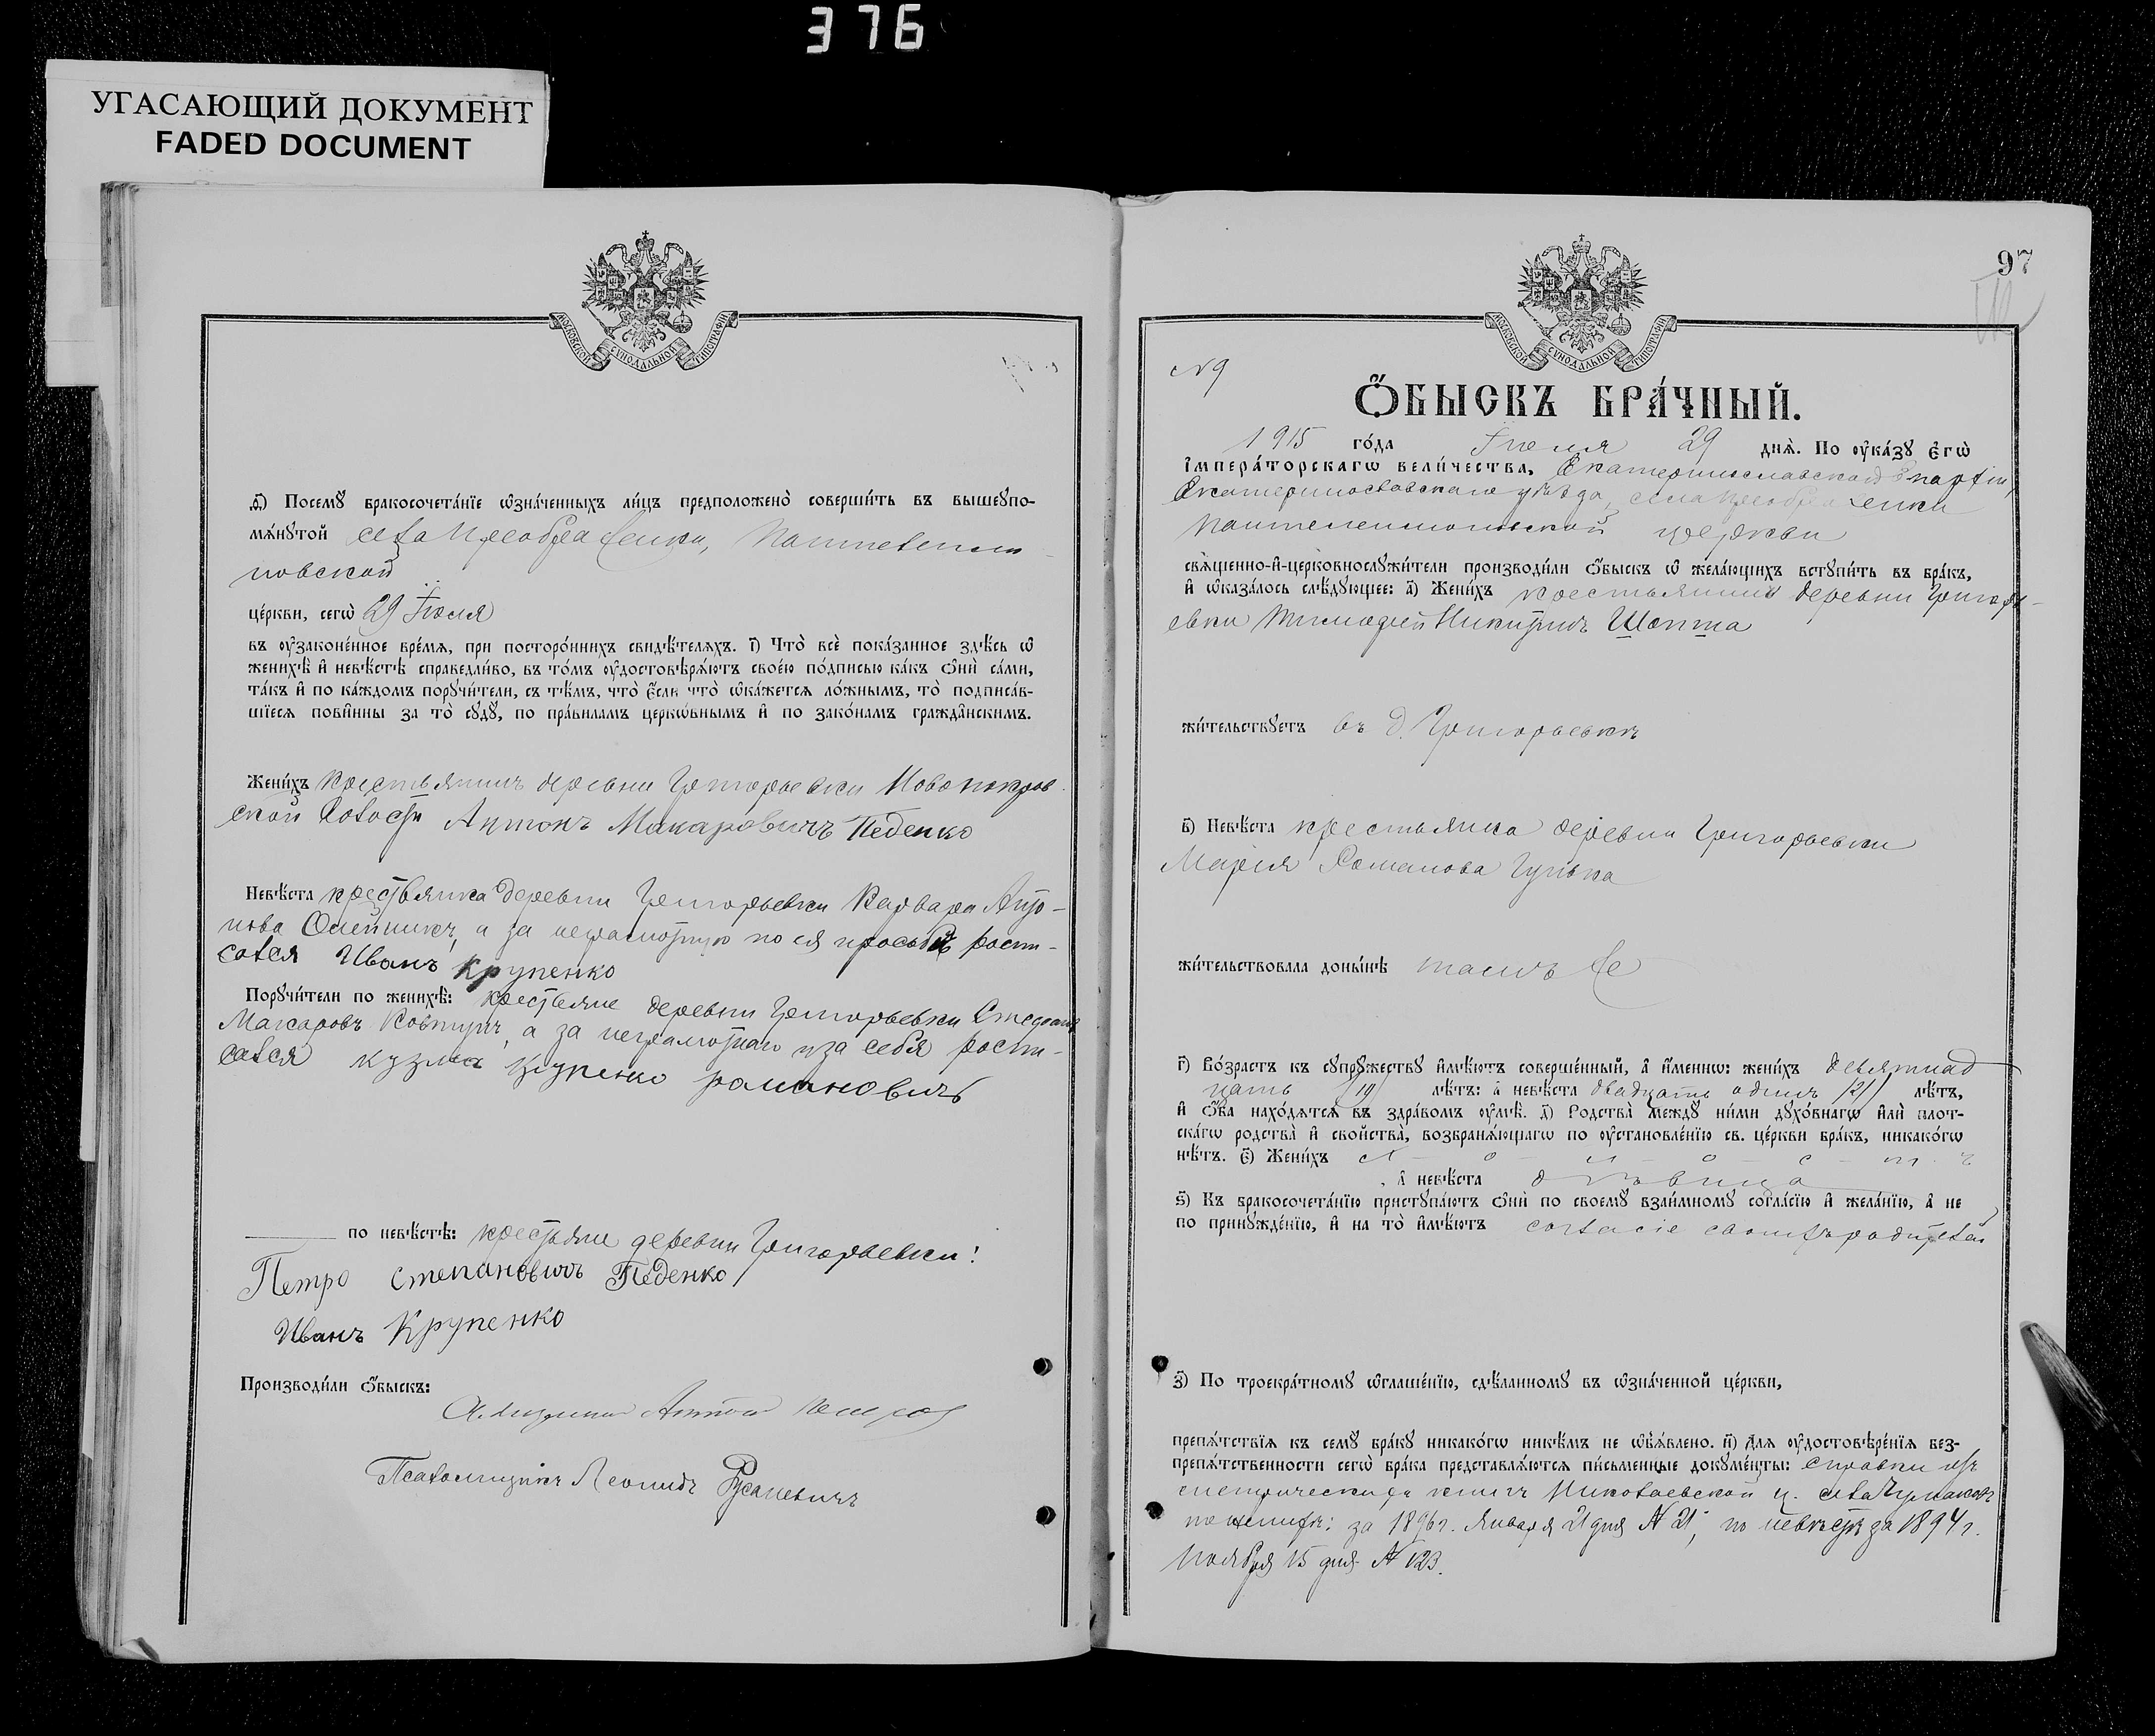 376
УГАСАЮЩИЙ ДОКУМЕНТ
FADED DOCUMENT
МОСКОВСКОЙ СѴНОДАЛЬНОЙ ТИПОГРАФІИ
ѳ҃) Посемꙋ̀ бракосочета́нїе ѡ҆зна́ченныхъ ли́цъ предположено̀ соверши́ть въ вышеꙋпо-
мѧ́нꙋтой села Преображенки, Пантелеимо-
новской
це́ркви, сегѡ̀ 29 Іюня
въ ᲂу҆законе́нное вре́мѧ, при посторо́ннихъ свидѣ́телѧхъ. і҃) Что̀ всѐ пока́занное здѣ́сь ѡ҆
женихѣ̀ и҆ невѣ́стѣ справедли́во, въ то́мъ ᲂу҆достовѣрѧ́ютъ свое́ю по́дписью ка́къ ѻ҆нѝ са́ми,
та́къ и҆ по ка́ждомъ порꙋчи́тели, съ тѣ́мъ, что̀ є҆́сли что̀ ѡ҆ка́жетсѧ ло́жнымъ, то̀ подписа́в-
шїесѧ пови́нны за то̀ сꙋдꙋ̀, по пра́виламъ церко́внымъ и҆ по зако́намъ гражда́нскимъ.
Жени́хъ крестьянинъ деревни Григорьевки Новопокров-
ской волости Антонъ Макаровичъ Педенко
Невѣ́ста крестьянка деревни Григорьевки Варвара Анто-
нова Олейникъ, а за неграмотную по ея просьбѣ роспи-
сался Иванъ Крупенко
Порꙋчи́тели по женихѣ̀: крестьяне деревни Григорьевки Стефанъ
Макаровъ Ковтунъ, а за неграмотнаго и за себя роспи-
сался Кузма Крупенко романовичъ
по невѣ́стѣ: крестьяне деревни Григорьевки:
Петро Степановичъ Педенко
Иванъ Крупенко
Производи́ли ѻ҆́быскъ:
Антоній
Псаломщикъ Леонидъ Русаневичъ
97
МОСКОВСКОЙ СѴНОДАЛЬНОЙ ТИПОГРАФІИ
№9
Ѻ҆́БЫСКЪ БРА́ЧНЫЙ.
1915 го́да Іюня 29 днѧ̀. По ᲂу҆ка́зꙋ Є҆гѡ̀
І҆мпера́торскагѡ вели́чества, Екатеринославской Епархіи,
Екатеринославскаго уѣзда, села Преображенки
Пантелеимоновской церкви
свѧще́нно-и҆-церковнослꙋжи́тели производи́ли ѻ҆́быскъ ѡ҆ жела́ющихъ встꙋпи́ть въ бра́къ,
и҆ ѡ҆каза́лось слѣ́дꙋющее: а҃) Жени́хъ крестьянинъ деревни Григорь-
евки Тимофей Никитинъ Шопта
жи́тельствꙋетъ въ д. Григорьевкѣ
в҃) Невѣ́ста крестьянка деревни Григорьевки
Марія Романова Гунька
жи́тельствовала доны́нѣ тамъ же
г҃) Во́зрастъ къ сꙋпрꙋ́жествꙋ и҆мѣ́ютъ соверше́нный, а҆ и҆́менно: жени́хъ девятнад-
цать /19/ лѣ́тъ: а҆ невѣ́ста двадцать одинъ /21/ лѣ́тъ,
и҆ ѻ҆́ба нахо́дѧтсѧ въ здра́вомъ ᲂу҆мѣ̀. д҃) Родства̀ междꙋ̀ ни́ми дꙋхо́внагѡ и҆лѝ плот-
ска́гѡ родства̀ и҆ свойства̀, возбранѧ́ющагѡ по ᲂу҆становле́нїю св. це́ркви бра́къ, никако́гѡ
нѣ́тъ. є҃) Жени́хъ х - о - л - о - с - т - ъ
а҆ невѣ́ста дѣвица
ѕ҃) Къ бракосочета́нїю пристꙋпа́ютъ ѻ҆нѝ по своемꙋ̀ взаи́мномꙋ согла́сїю и҆ жела́нїю, а҆ не
по принꙋжде́нїю, и҆ на то̀ и҆мѣ́ютъ согласіе своихъ родителей
з҃) По троекра́тномꙋ ѡ҆глаше́нїю, сдѣ́ланномꙋ въ ѡ҆зна́ченной це́ркви,
препѧ́тствїѧ къ семꙋ̀ бра́кꙋ никако́гѡ никѣ́мъ не ѡ҆б̾ѧ́влено. и҃) Длѧ ᲂу҆достовѣре́нїѧ без-
препѧ́тственности сегѡ̀ бра́ка представлѧ́ютсѧ пи́сьменные докꙋме́нты: справки изъ
метрическихъ книгъ Николаевской ц. села
по женихѣ: за 1896 г. Января 21 дня № 21, по невѣстѣ за 1894 г.
Ноября 15 дня № 123.